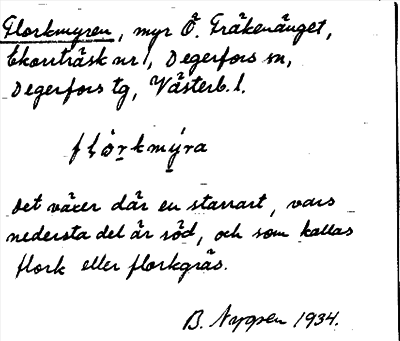 Florkmyren, myr Ö. Fräkenänget,
Ekorrträsk nr 1, Degerfors sn,
Degerfors tg, Västerb. l.
flo̊rkmýra
Det växer där en starrart, vars
nedersta del är röd, och som kallas
flork eller florkgräs.
B. Nygren 1934.